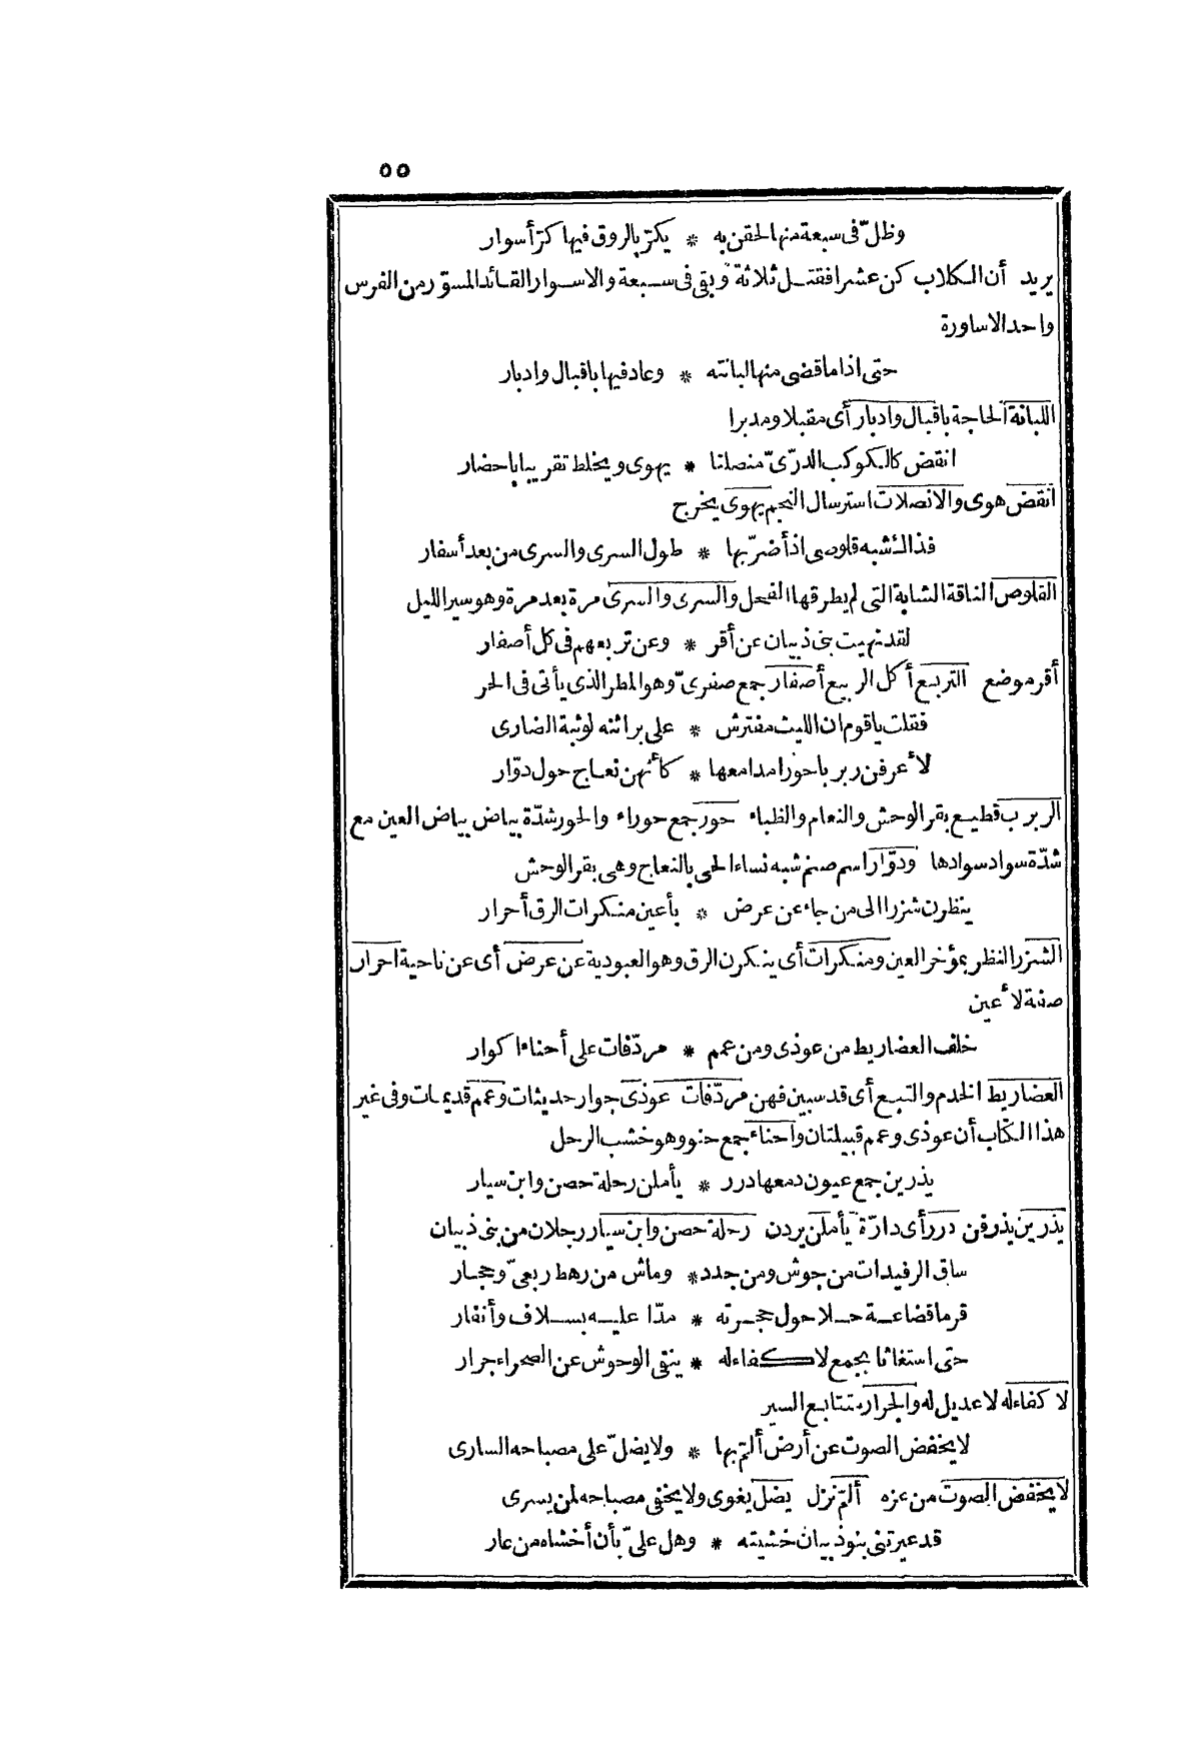 ٥٥
وظلّ فى سبعة منها لحقن به * يكرّ بالروق فيها كرّ أسوار
يريد أن الكلاب كن عشرا فقتل ثلاثة وبقى فى سبعة والاسوار القائد المسوّر من الفرس
واحد الاساورة
حتى اذا ما قضى منها لبانته * وعاد فيها باقبال وادبار
اللبانة الحاجة باقبال وادبار أى مقبلا ومدبرا
انقض كالكوكب الدرّىّ منصلتا * يهوى ويخلط تقريبا باحضار
انقض هوى والانصلات استرسال النجم يهوى يخرج
فذاك شبه قلوصى اذ أضرّ بها * طول السرى والسرى من بعد أسفار
القلوص الناقة الشابة التى لم يطرقها الفحل والسرى والسرى مرة بعد مرة وهو سير الليل
لقد نهيت بنى ذبيان عن أقر * وعن تربعهم فى كل أصفار
أقر موضع التربع أكل الربيع أصفار جمع صفرىّ وهو المطر الذى يأتى فى الحر
فقلت ياقوم ان الليث مفترش * على براثنه لوثبة الضارى
لا أعرفن ربربا حورا مدامعها * كأنهن نعاج حول دوّار
الربرب قطيع بقر الوحش والنعام والظباء حور جمع حوراء والحور شدّة بياض بياض العين مع
شدّة سواد سوادها ودوّار اسم صنم شبه نساء الحى بالنعاج وهى بقر الوحش
ينظرن شزرا الى من جاء عن عرض * بأعين منكرات الرق أحرار
الشزر النظر بمؤخر العين ومنكرات أى ينكرن الرق وهو العبودية عن عرض أى عن ناحية احرار
صفة لأعين
خلف العضاريط من عوذى ومن عمم * مردّفات على أحناء اكوار
العضاريط الخدم والتبع أى قد سبين فهن مردّفات عوذى جوار حديثات وعمم قديمات وفى غير
هذا الكتاب أن عوذى وعمم قبيلتان وأحناء جمع حنو وهو خشب الرحل
يذرين جمع عيون دمعها درر * يأملن رحلة حصن وابن سيار
يذرين يذرفن درر أى دارّة يأملن يردن رحلة حصن وابن سيار رجلان من بنى ذبيان
ساق الرفيدات من جوش ومن جدد * وماش من رهط ربعىّ وحجار
قرما قضاعة حلا حول حجرته * مدّا عليه بسلاف وأنفار
حتى استغاثا بجمع لا كفاء له * ينفى الوحوش عن الصحراء جرار
لا كفاء له لا عديل له والجرار متتابع السير
لا يخفض الصوت عن أرض ألمّ بها * ولا يضلّ على مصباحه السارى
لا يخفض الصوت من عزه ألمّ نزل يضل يغوى ولا يخفى مصباحه لمن يسرى
قد عيرتنى بنو ذبيان خشيته * وهل علىّ بأن أخشاه من عار